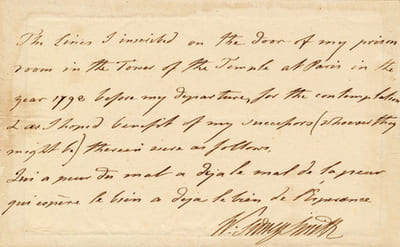 The lines I inscribed on the door of my prison
room in the Tower of the Temple at Paris in the
year 1798 before my departure, for the contemplation
& as I hoped benefit of my successors (whoever they
might be) therein were as follows.
Qui a peur du mal a deja le mal de la peur
qui espère le bien a deja le bien de l'Esperance
W. Sidney Smith